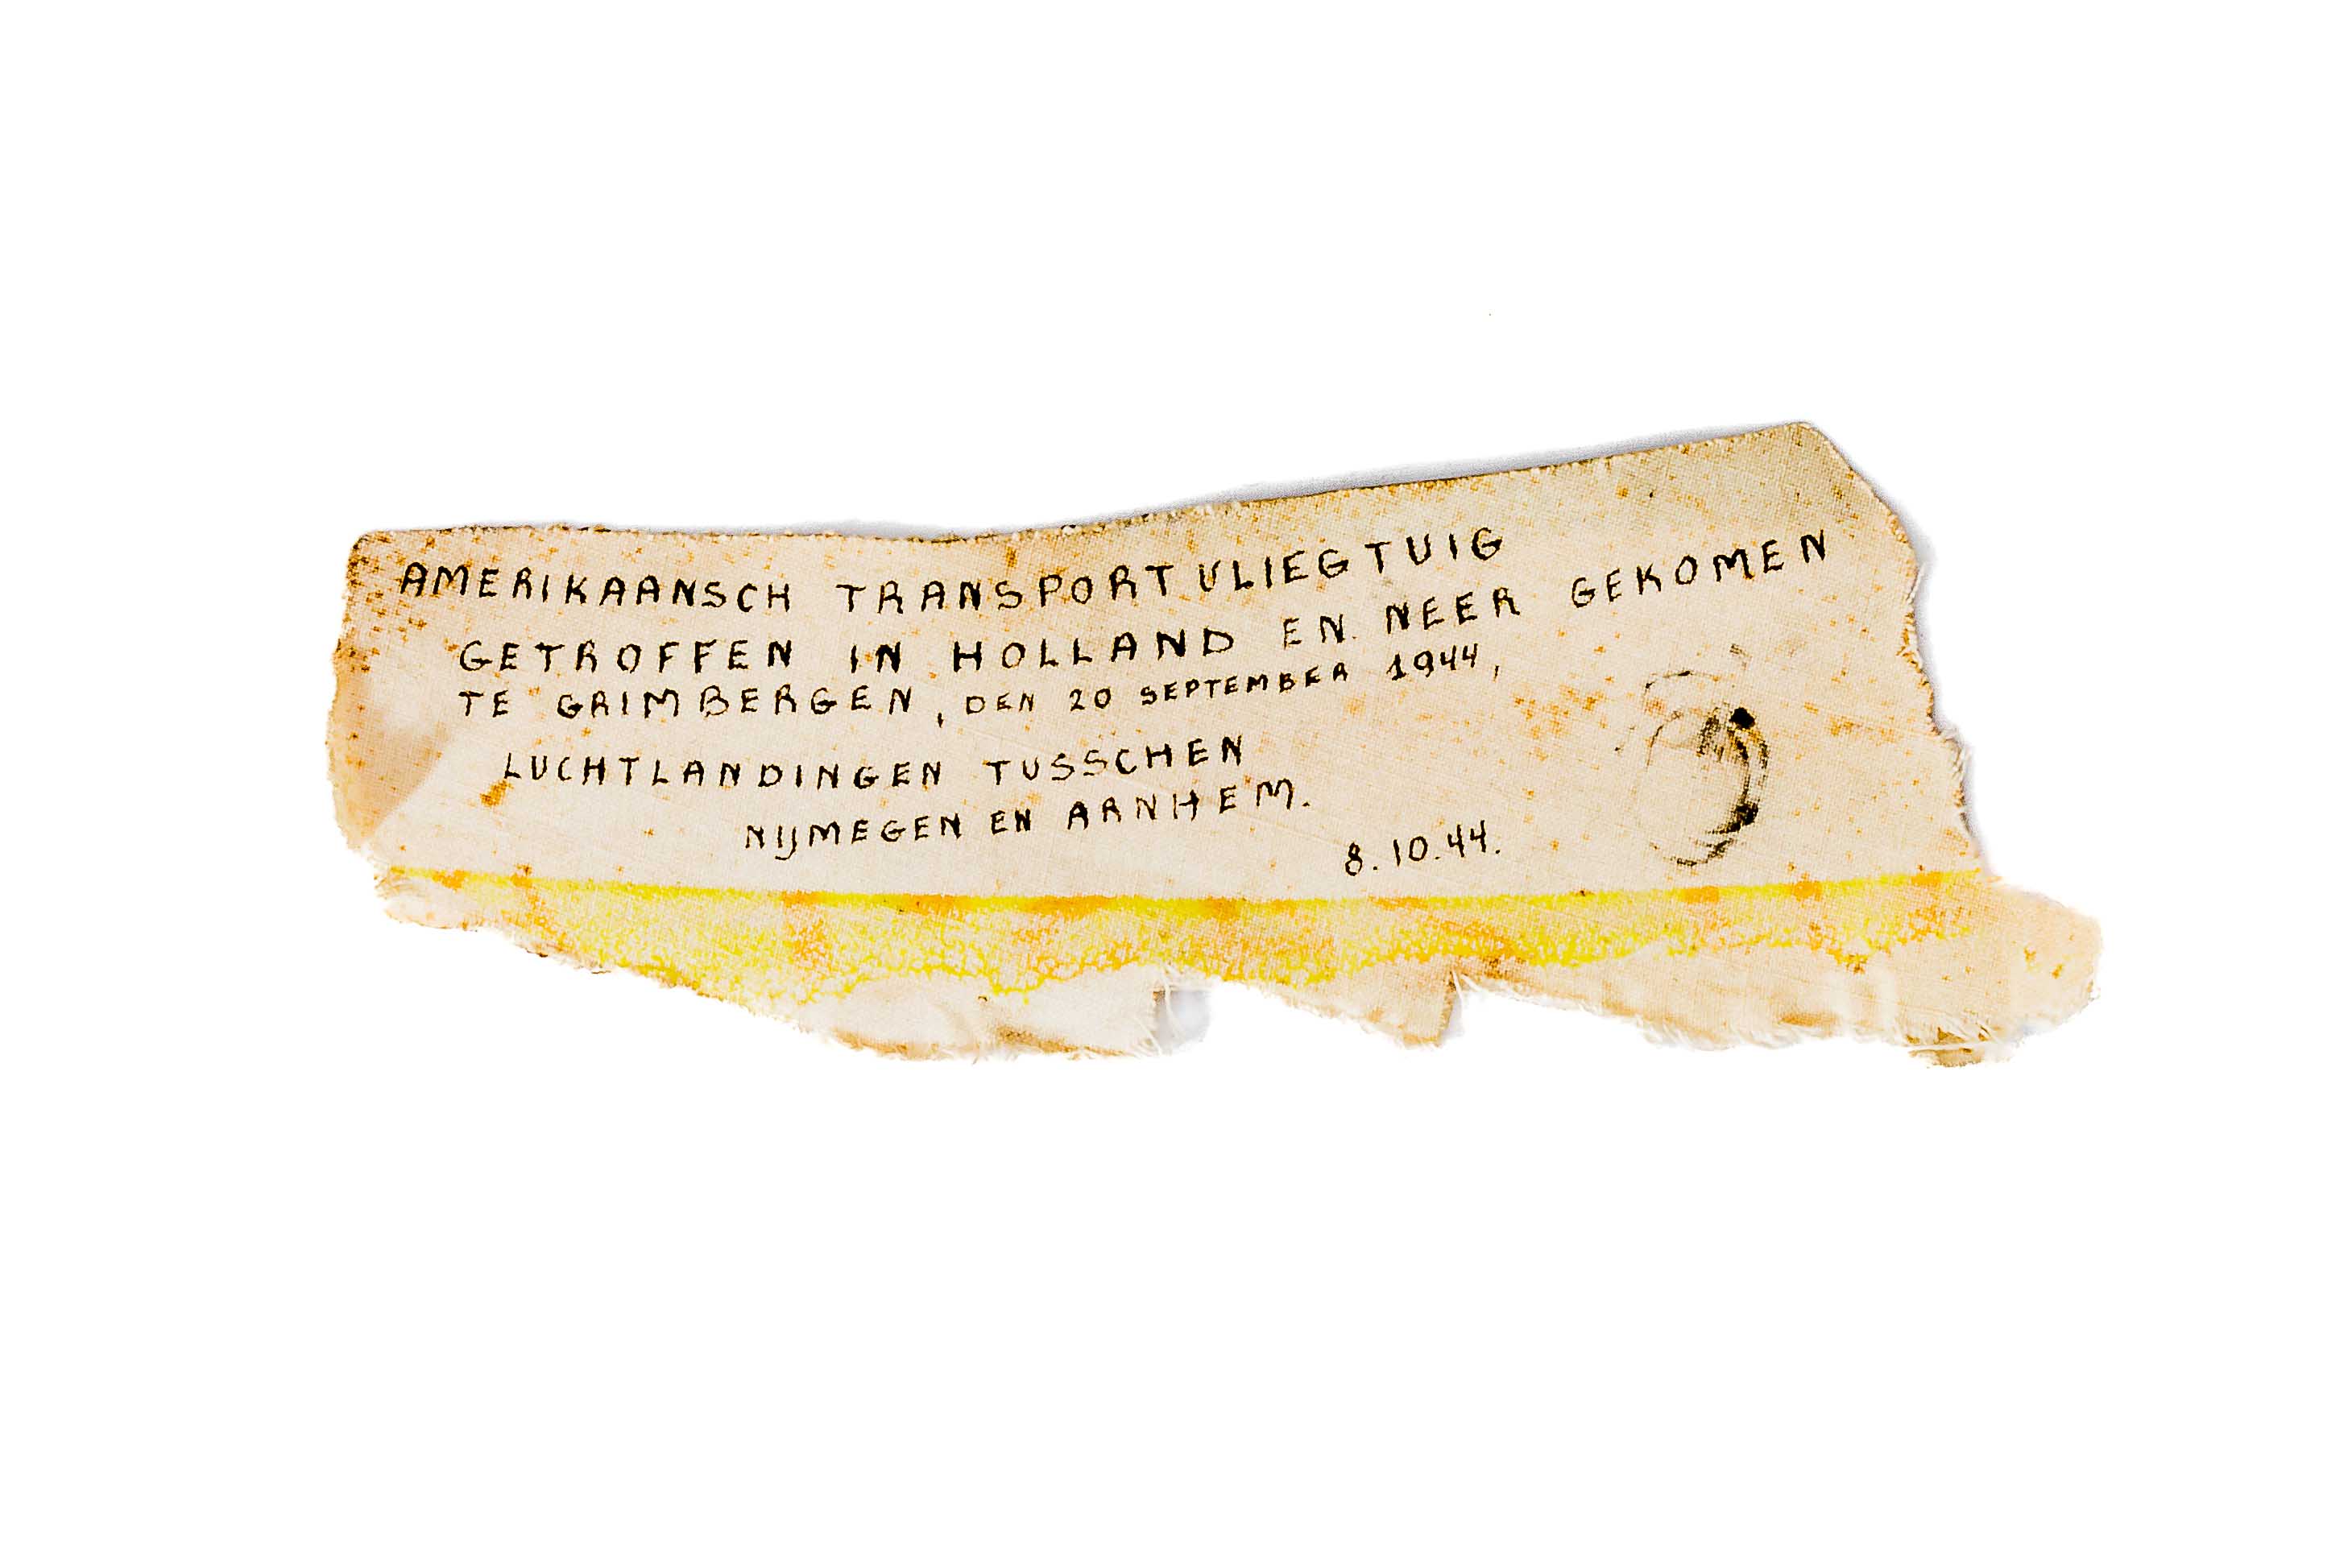 AMERIKAANSCH TRANSPORTVLIEGTUIG
GETROFFEN IN HOLLAND EN NEER GEKOMEN
TE GRIMBERGEN, DEN 20 SEPTEMBER 1944,
LUCHTLANDINGEN TUSSCHEN
NIJMEGEN EN ARNHEM.
8.10.44.